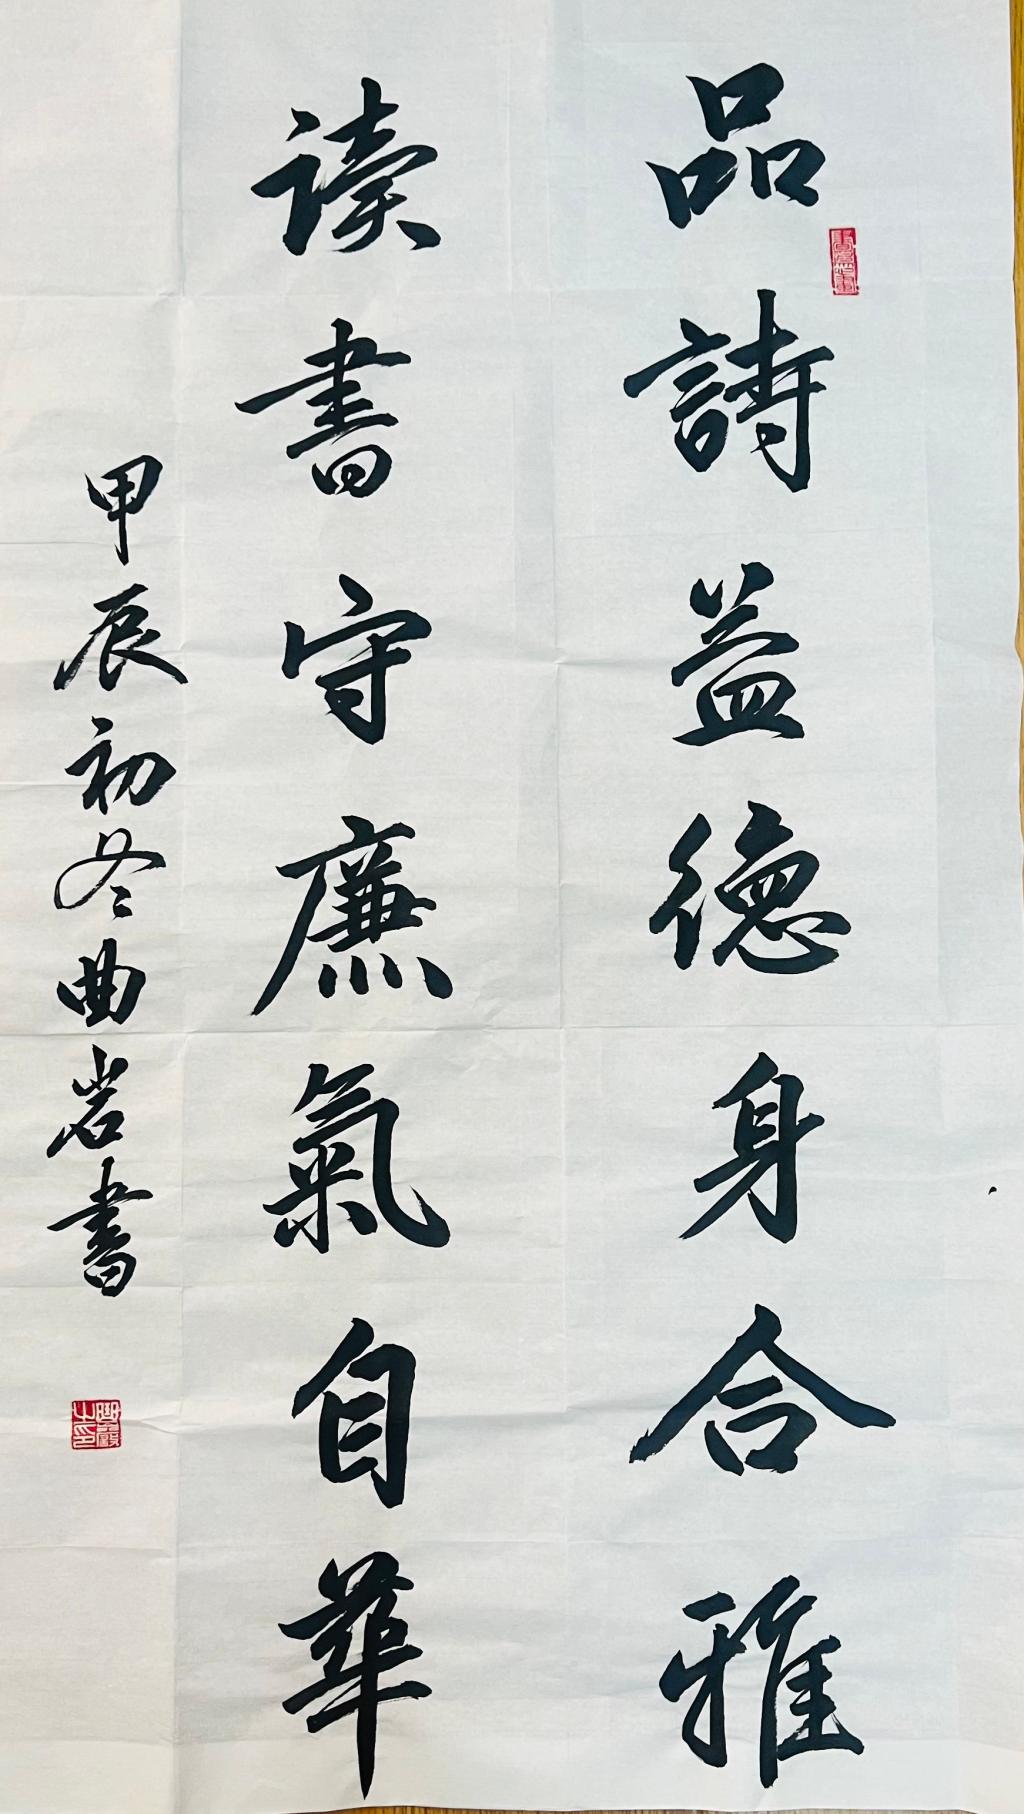 品詩益德身合雅
读書守廉氣自華
甲辰初冬曲岩書